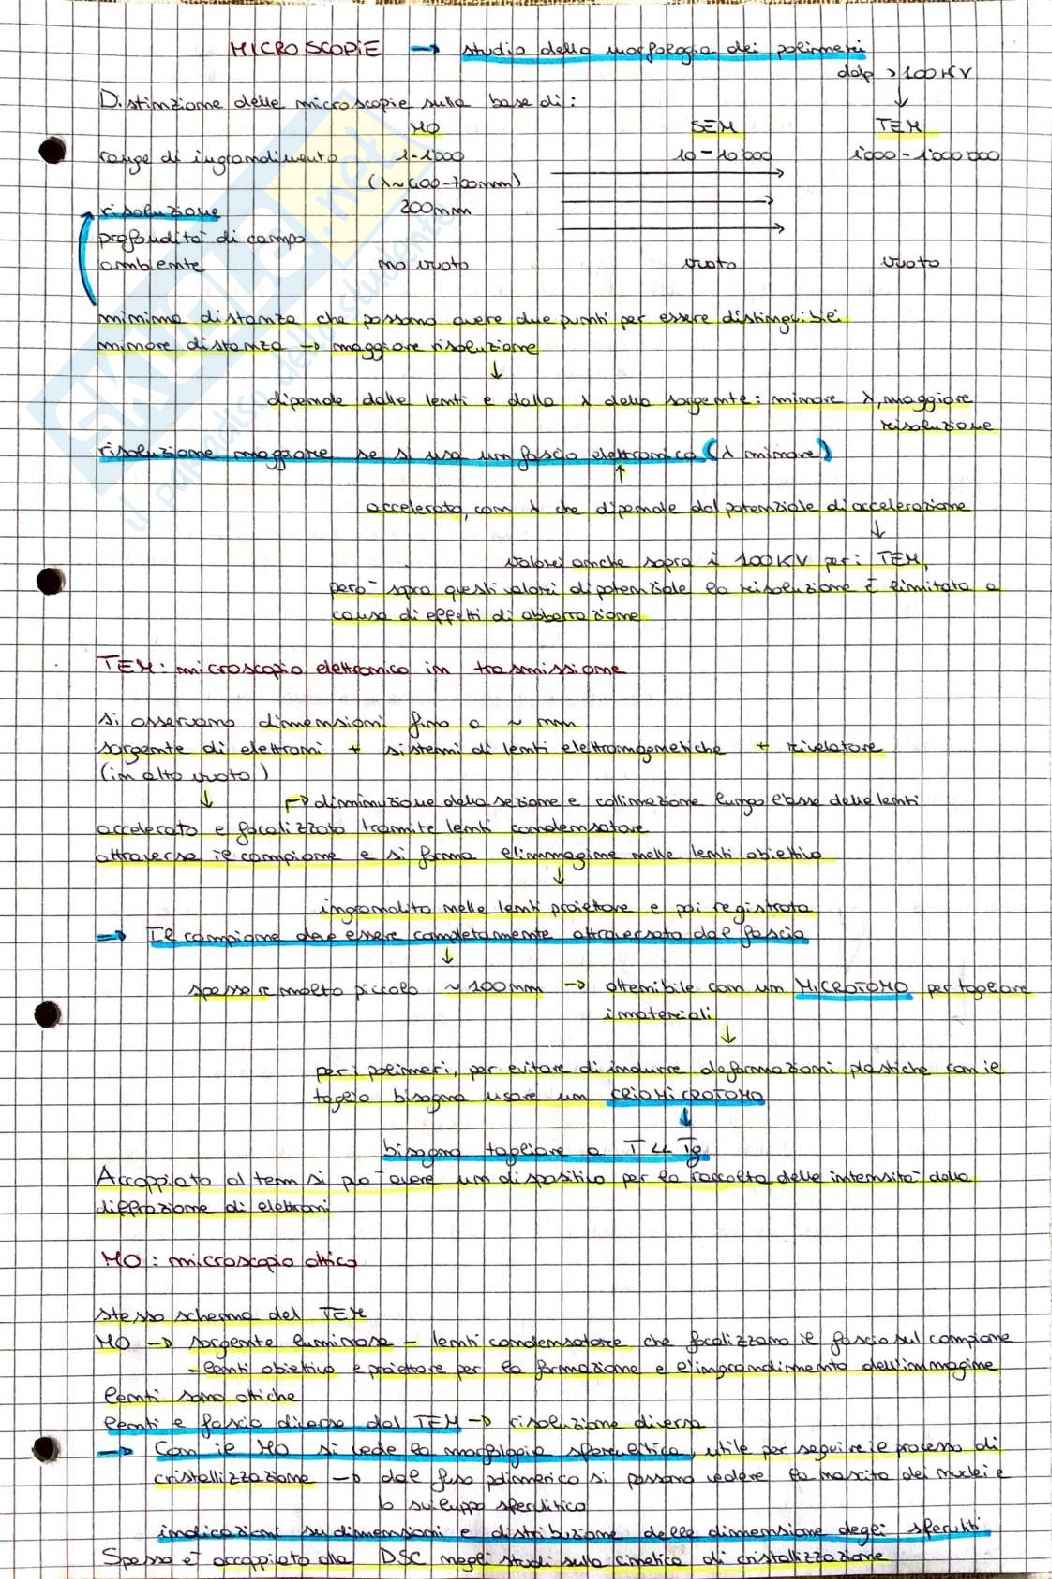 MICROSCOPIE → studio della morfologia dei polimeri
ddp > 100KV
Distinzione delle microscopie sulla base di:
MO SEM TEM
range di ingrandimento 1-1'000 10-10'000 1'000-1'000'000
(λ~400-700nm)
risoluzione 200nm
profondità di campo
ambiente no vuoto vuoto vuoto
minima distanza che possono avere due punti per essere distinguibili
minore distanza → maggiore risoluzione
dipende dalle lenti e dalla λ della sorgente: minore λ, maggiore
risoluzione
risoluzione maggiore se si usa un fascio elettronico (λ minore)
accelerato, con λ che dipende dal potenziale di accelerazione
valori anche sopra i 100KV per i TEM,
però sopra questi valori di potenziale la risoluzione è limitata a
causa di effetti di abberrazione
TEM: microscopio elettronico in trasmissione
si osservano dimensioni fino a ~ nm
sorgente di elettroni + sistemi di lenti elettromagnetiche + rivelatore
(in alto vuoto)
→ diminuzione della sezione e collimazione lungo l'asse delle lenti
accelerato e focalizzato tramite lenti condensatore
attraversa il campione e si forma l'immagine nelle lenti obiettivo
ingrandita nelle lenti proiettore e poi registrata
→ Il campione deve essere completamente attraversato dal fascio
spessore molto piccolo ~100nm → ottenibile con un MICROTOMO per tagliare
i materiali
per i polimeri, per evitare di indurre deformazioni plastiche con il
taglio bisogna usare un CRIOMICROTOMO
bisogna tagliare a T << Tg
Accoppiato al tem si può avere un dispositivo per la raccolta delle intensità della
diffrazione di elettroni
MO: microscopio ottico
stesso schema del TEM
MO → sorgente luminosa - lenti condensatore che focalizzano il fascio sul campione
- lenti obiettivo e proiettore per la formazione e l'ingrandimento dell'immagine
lenti sono ottiche
lenti e fascio diverse dal TEM → risoluzione diversa
→ Con il MO si vede la morfologia sferulitica, utile per seguire il processo di
cristallizzazione → dal fuso polimerico si possono vedere la nascita dei nuclei e
lo sviluppo sferulitico
indicazioni su dimensioni e distribuzione delle dimensione degli sferuliti
Spesso è accoppiato alla DSC negli studi sulla cinetica di cristallizzazione